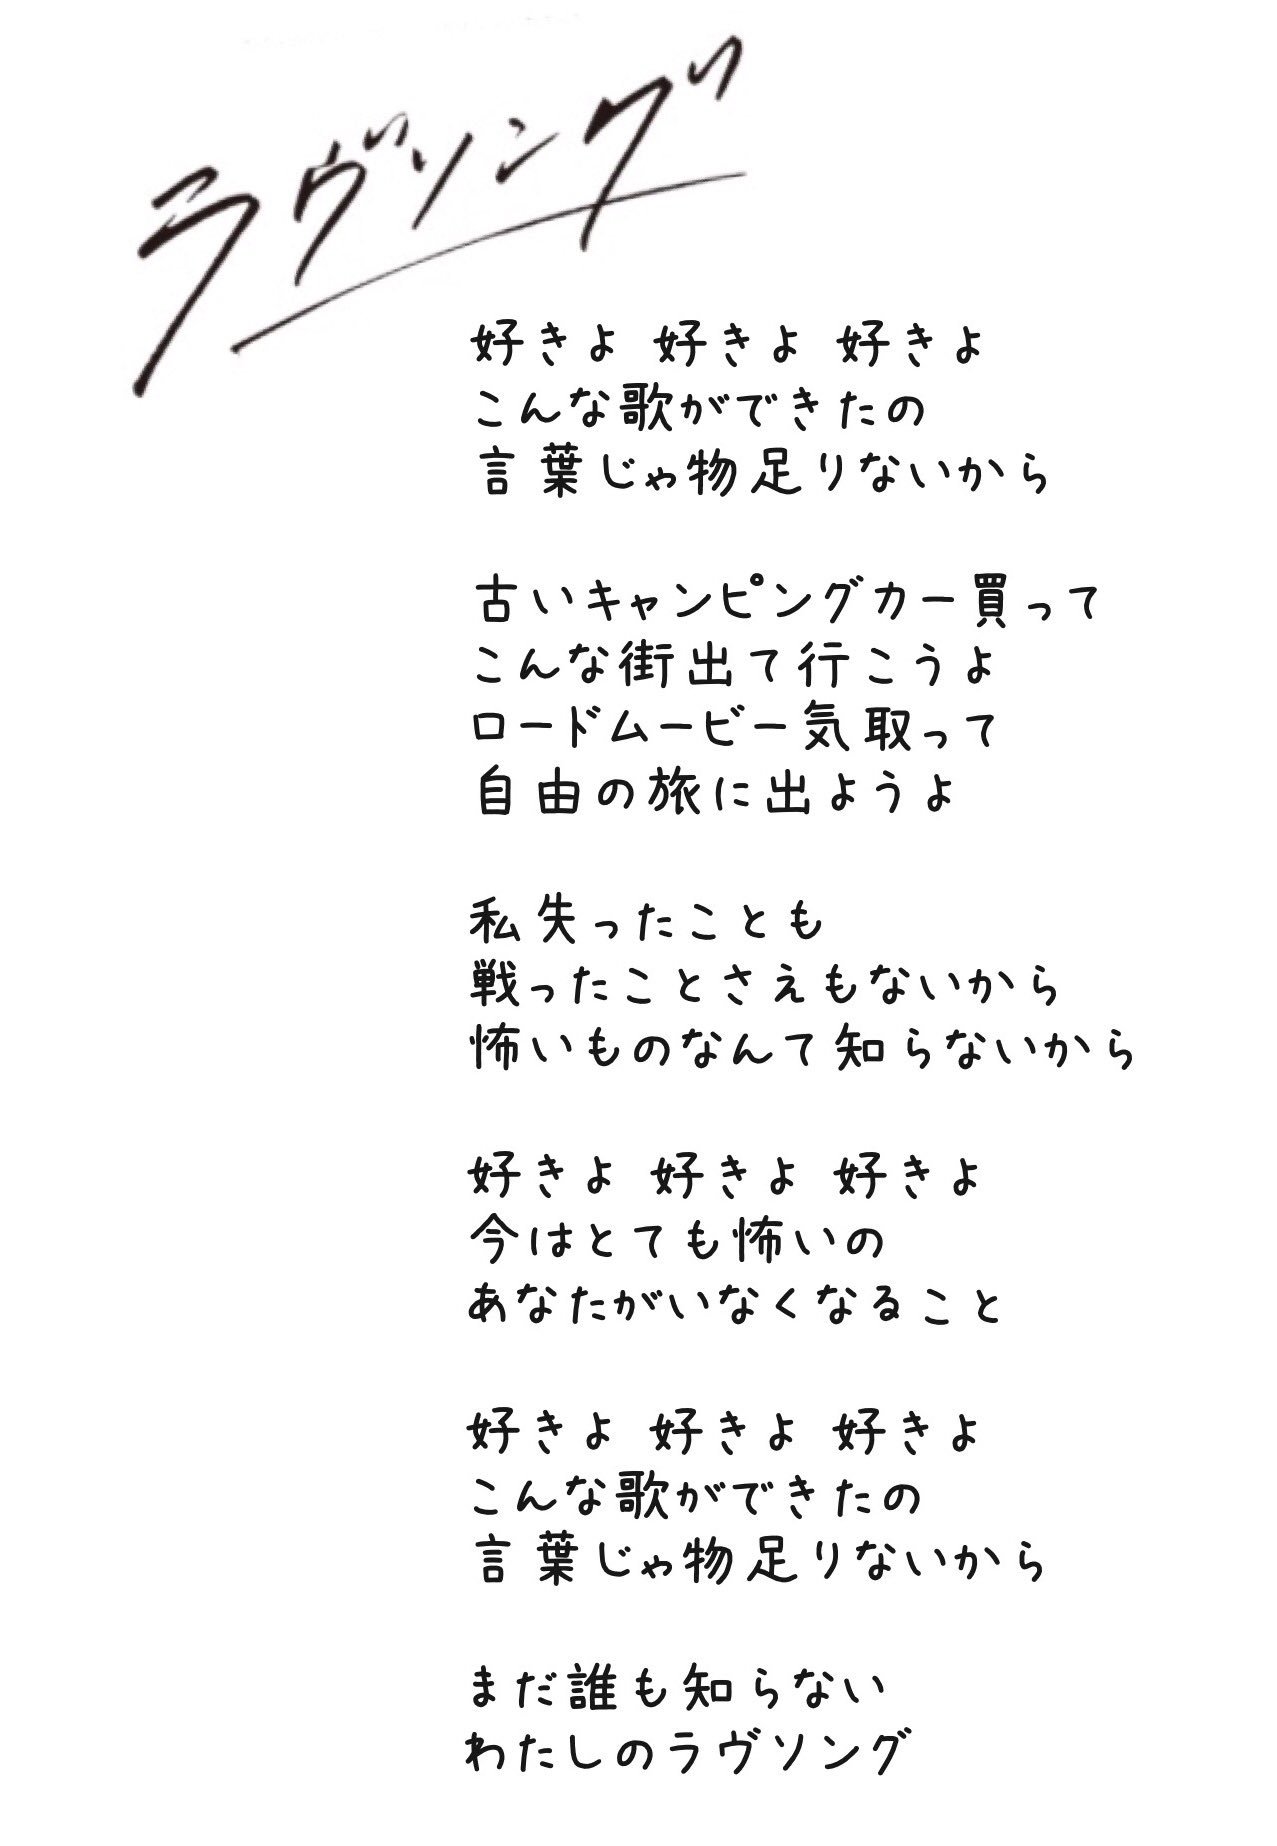 ラヴソング
好きよ 好きよ 好きよ
こんな歌ができたの
言葉じゃ物足りないから
古いキャンピングカー買って
こんな街出て行こうよ
ロードムービー気取って
自由の旅に出ようよ
私失ったことも
戦ったことさえもないから
怖いものなんて知らないから
好きよ 好きよ 好きよ
今はとても怖いの
あなたがいなくなること
好きよ 好きよ 好きよ
こんな歌ができたの
言葉じゃ物足りないから
まだ誰も知らない
わたしのラヴソング